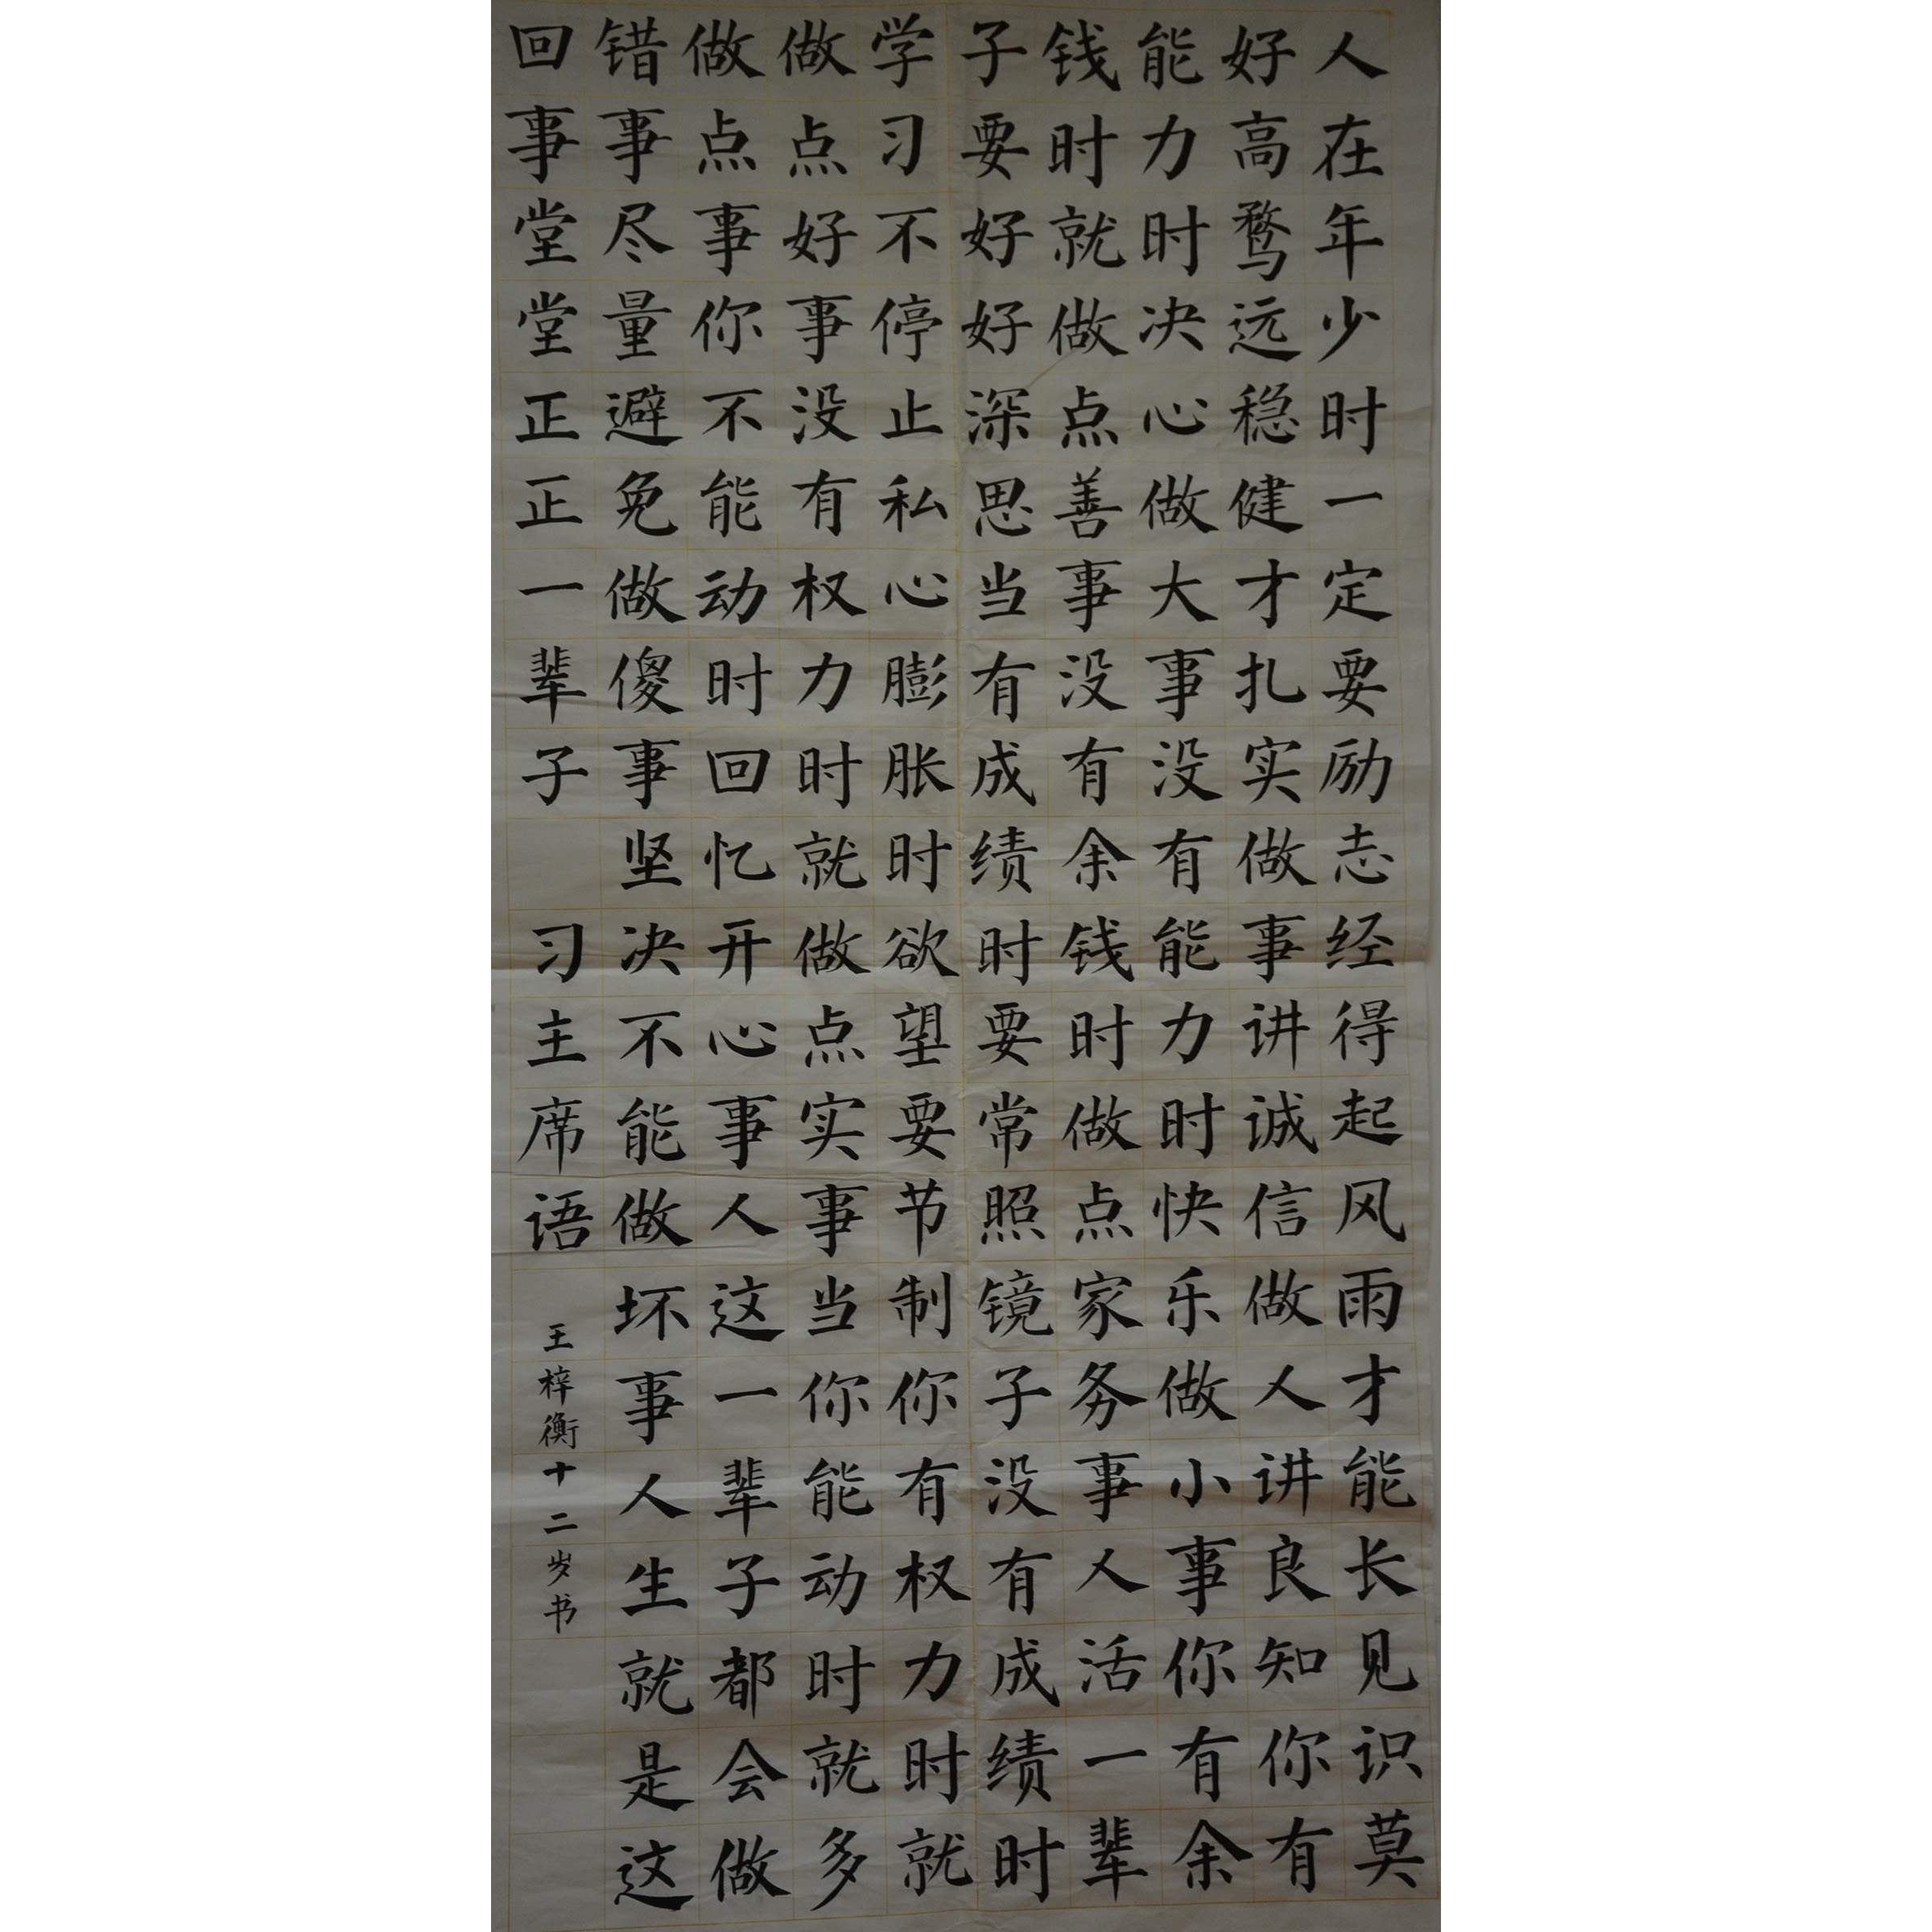 人在年少时一定要励志经得起风雨才能长见识莫
好高鹜远稳健才扎实做事讲诚信做人讲良知你有
能力时决心做大事没有能力时快乐做小事你有余
钱时就做点善事没有余钱时做点家务事人活一辈
子要好好深思当有成绩时要常照镜子没有成绩时
学习不停止私心膨胀时欲望要节制你有权力时就
做点好事没有权力时就做点实事当你能动时就多
做点事你不能动时回忆开心事人这一辈子都会做
错事尽量避免做傻事坚决不能做坏事人生就是这
回事堂堂正正一辈子 习主席语
王梓衡十二岁书